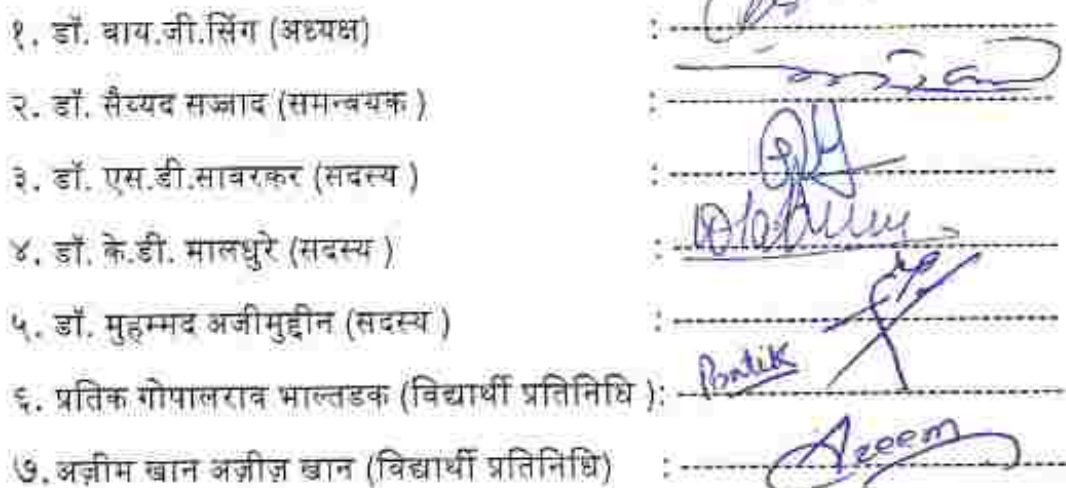 १. डॉ. वाय.जी.सिंग (अध्यक्ष) :
२. डॉ. सैय्यद सज्जाद (समन्वयक ) :
३. डॉ. एस.डी.सावरकर (सदस्य ) :
४. डॉ. के.डी. मालधुरे (सदस्य ) :
५. डॉ. मुहम्मद अजीमुद्दीन (सदस्य ) :
६. प्रतिक गोपालराव भाल्तडक (विद्यार्थी प्रतिनिधि ): Pratik
७. अज़ीम खान अज़ीज़ खान (विद्यार्थी प्रतिनिधि) : Azeem